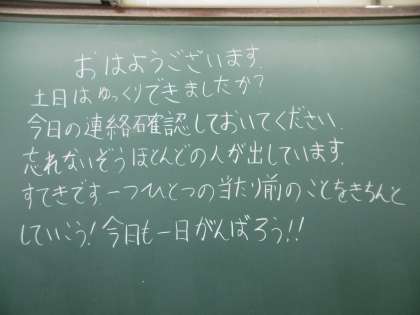 おはようございます.
土日はゆっくりできましたか?
今日の連絡確認しておいてください.
忘れないぞうほとんどの人が出しています.
すてきです.一つひとつの当たり前のことをきちんと
していこう!今日も一日がんばろう!!